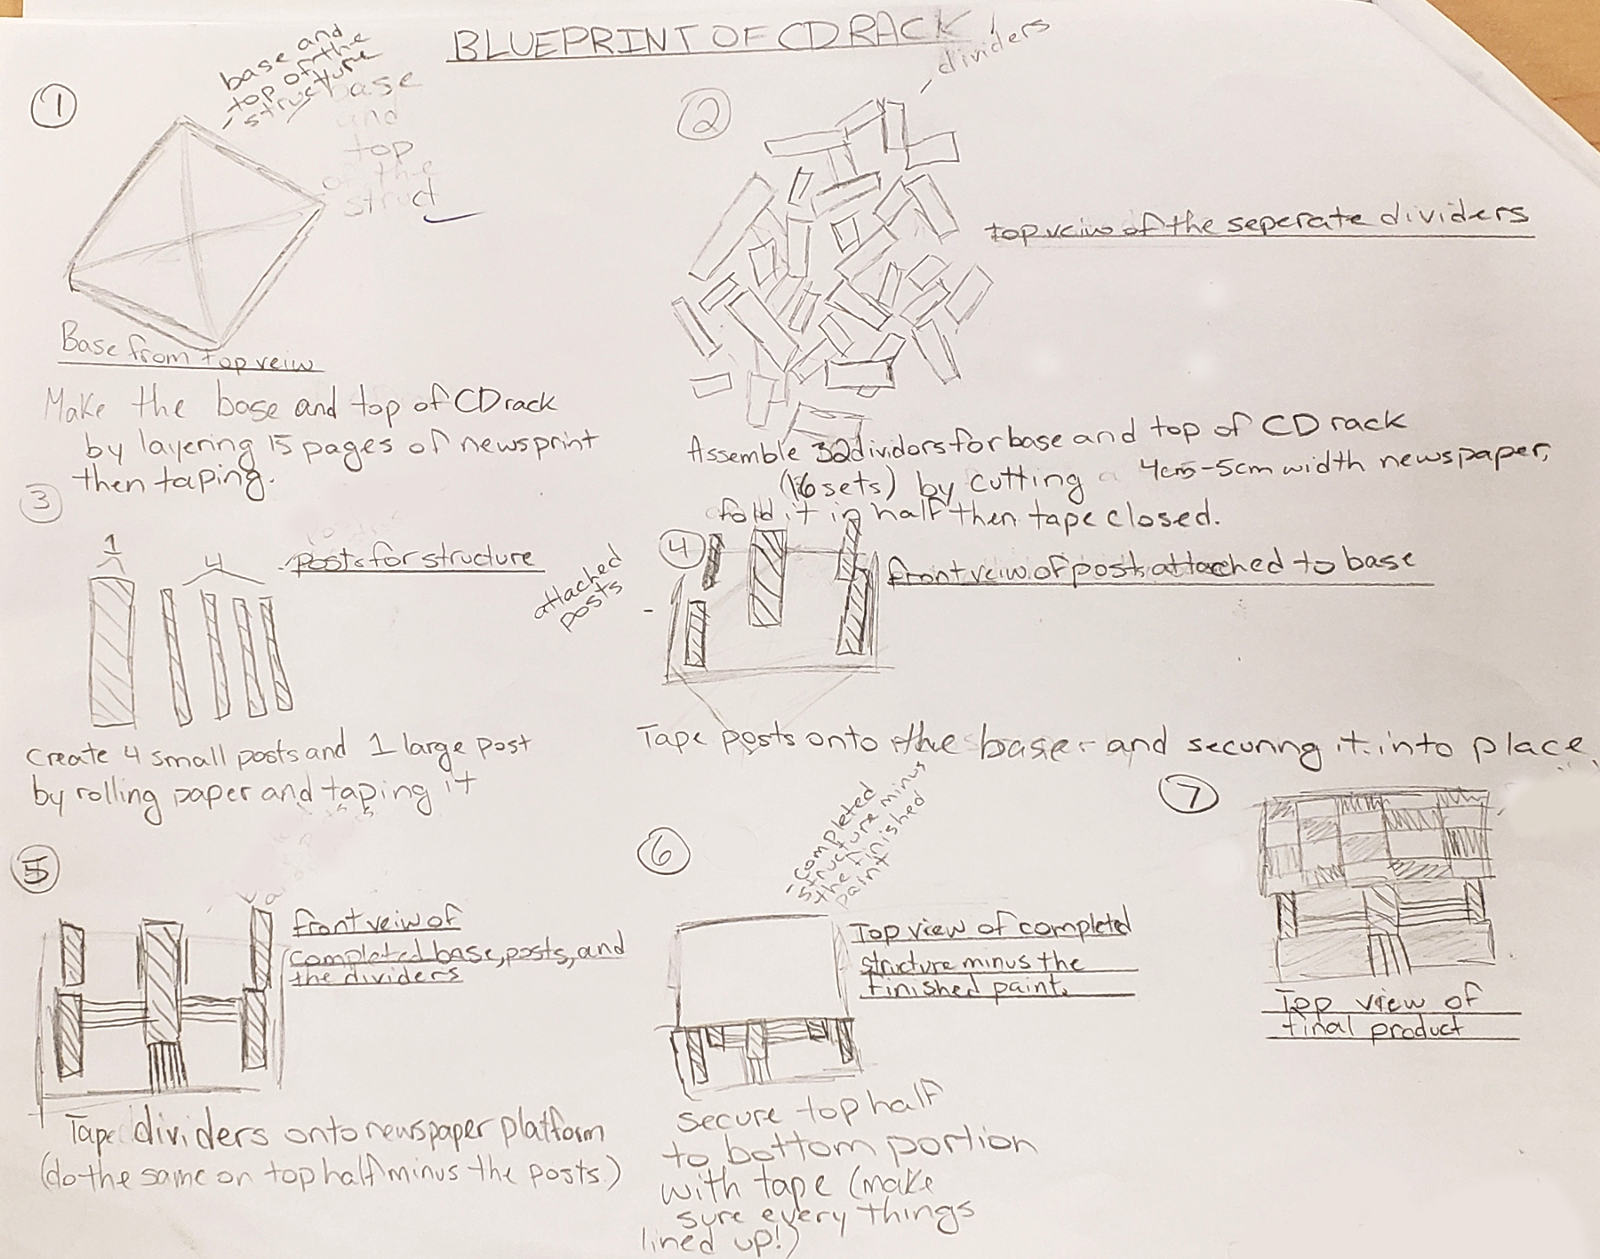 BLUEPRINT OF CD RACK
1
base and
top of the
- structure
base
and
top
of the
struct
Base from top veiw
Make the base and top of CD rack
by layering 15 pages of newsprint
then taping.
2
dividers
top veiw of the seperate dividers
Assemble 32 dividors for base and top of CD rack
(16 sets) by cutting a 4cm-5cm width newspaper,
fold it in half then tape closed.
3
1
4
- posts for structure
Create 4 small posts and 1 large post
by rolling paper and taping it
4
attached
posts
front veiw of posts attached to base
Tape posts onto the base and securing it into place
5
front veiw of
completed base, posts, and
the dividers
Tape dividers onto newspaper platform
(do the same on top half minus the posts.)
6
- completed
structure minus
the finished
paint
Top view of completed
structure minus the
finished paint.
secure top half
to bottom portion
with tape (make
sure every things
lined up!)
7
Top view of
final product